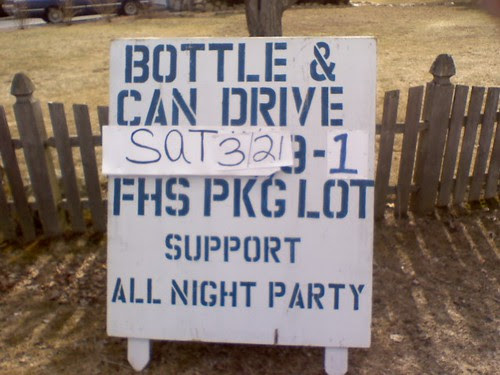 BOTTLE &
CAN DRIVE
SAT 3/21 9-1
FHS PKG LOT
SUPPORT
ALL NIGHT PARTY